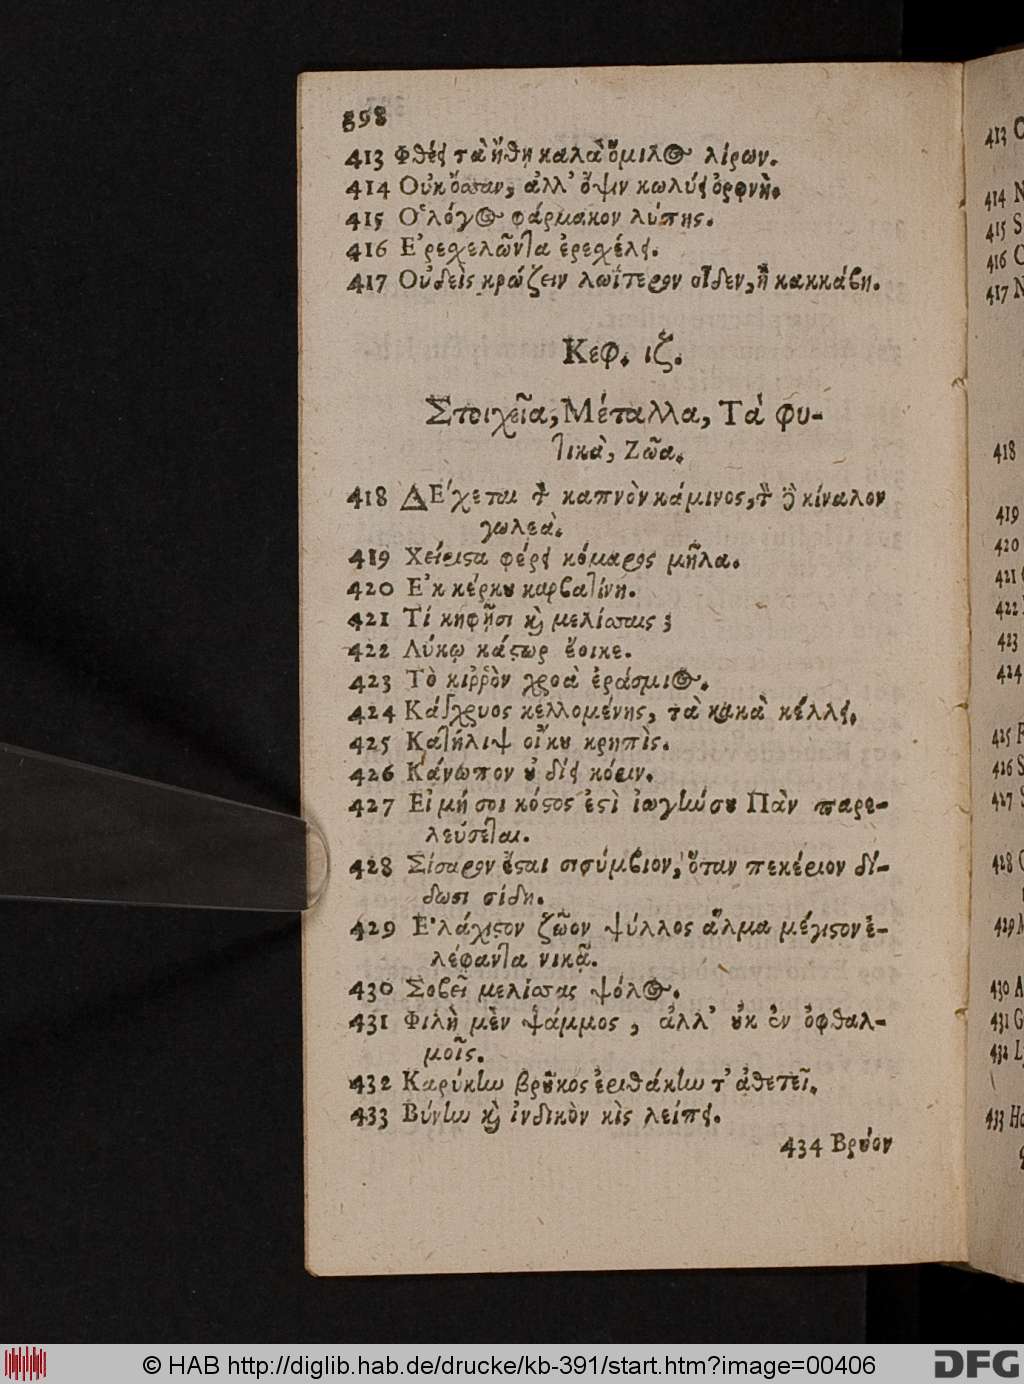 398
413 Φθείρει τὰ ἤθη καλὰ ὅμιλος λίρων.
414 Οὐκ ὄσσαν, ἀλλ' ὄψιν κωλύει ὀρφνή.
415 Ὁ λόγος φάρμακον λύπης.
416 Ἐρεχελῶντα ἐρεχέλει.
417 Οὐδεὶς κρώζειν λωΐτερον οἶδεν, ἢ κακκάβη.
Κεφ. ιζ.
Στοιχεῖα, Μέταλλα, Τὰ φυ-
τικὰ, Ζῶα.
418 ΔΕ'χεται τὸν καπνὸν κάμινος, τὸν δὲ κίναλον
γωλεὰ.
419 Χείριστα φέρει κόμαρος μῆλα.
420 Ἐκ κέρκου καρβατίνη.
421 Τί κηφῆσι καὶ μελίσσαις;
422 Λύκῳ κάστωρ ἔοικε.
423 Τὸ κιῤῥὸν χροὰ ἐράσμιος.
424 Κάγχρυος κελλομένης, τὰ κακὰ κέλλει.
425 Κατήλιψ οἴκου κρηπὶς.
426 Κάνωπον οὐ δεῖ κόειν.
427 Εἰ μή σοι κόστος ἐστὶ ἰωγὴν σου Πὰν παρε-
λεύσεται.
428 Σίσαρον ἔσται σισύμβιον, ὅταν πεκέριον δί-
δωσι σίδη.
429 Ἐλάχιστον ζῶον ψύλλος ἅλμα μέγιστον ἐ-
λέφαντα νικᾷ.
430 Σοβεῖ μελίσσας ψόλος.
431 Φιλὴ μὲν ψάμμος, ἀλλ' οὐκ ἐν ὀφθαλ-
μοῖς.
432 Καρύκην βροῦκος ἐριθάκην τ' ἀθετεῖ.
433 Βύνην καὶ ἰνδικὸν κὶς λείπει.
434 Βρύον
413
414 N
415 S
416
417 N
418
419
420
421
422
423
424
425
426 S
427
428
429 M
430 A
431 G
432
433 Ho
© HAB http://diglib.hab.de/drucke/kb-391/start.htm?image=00406
DFG